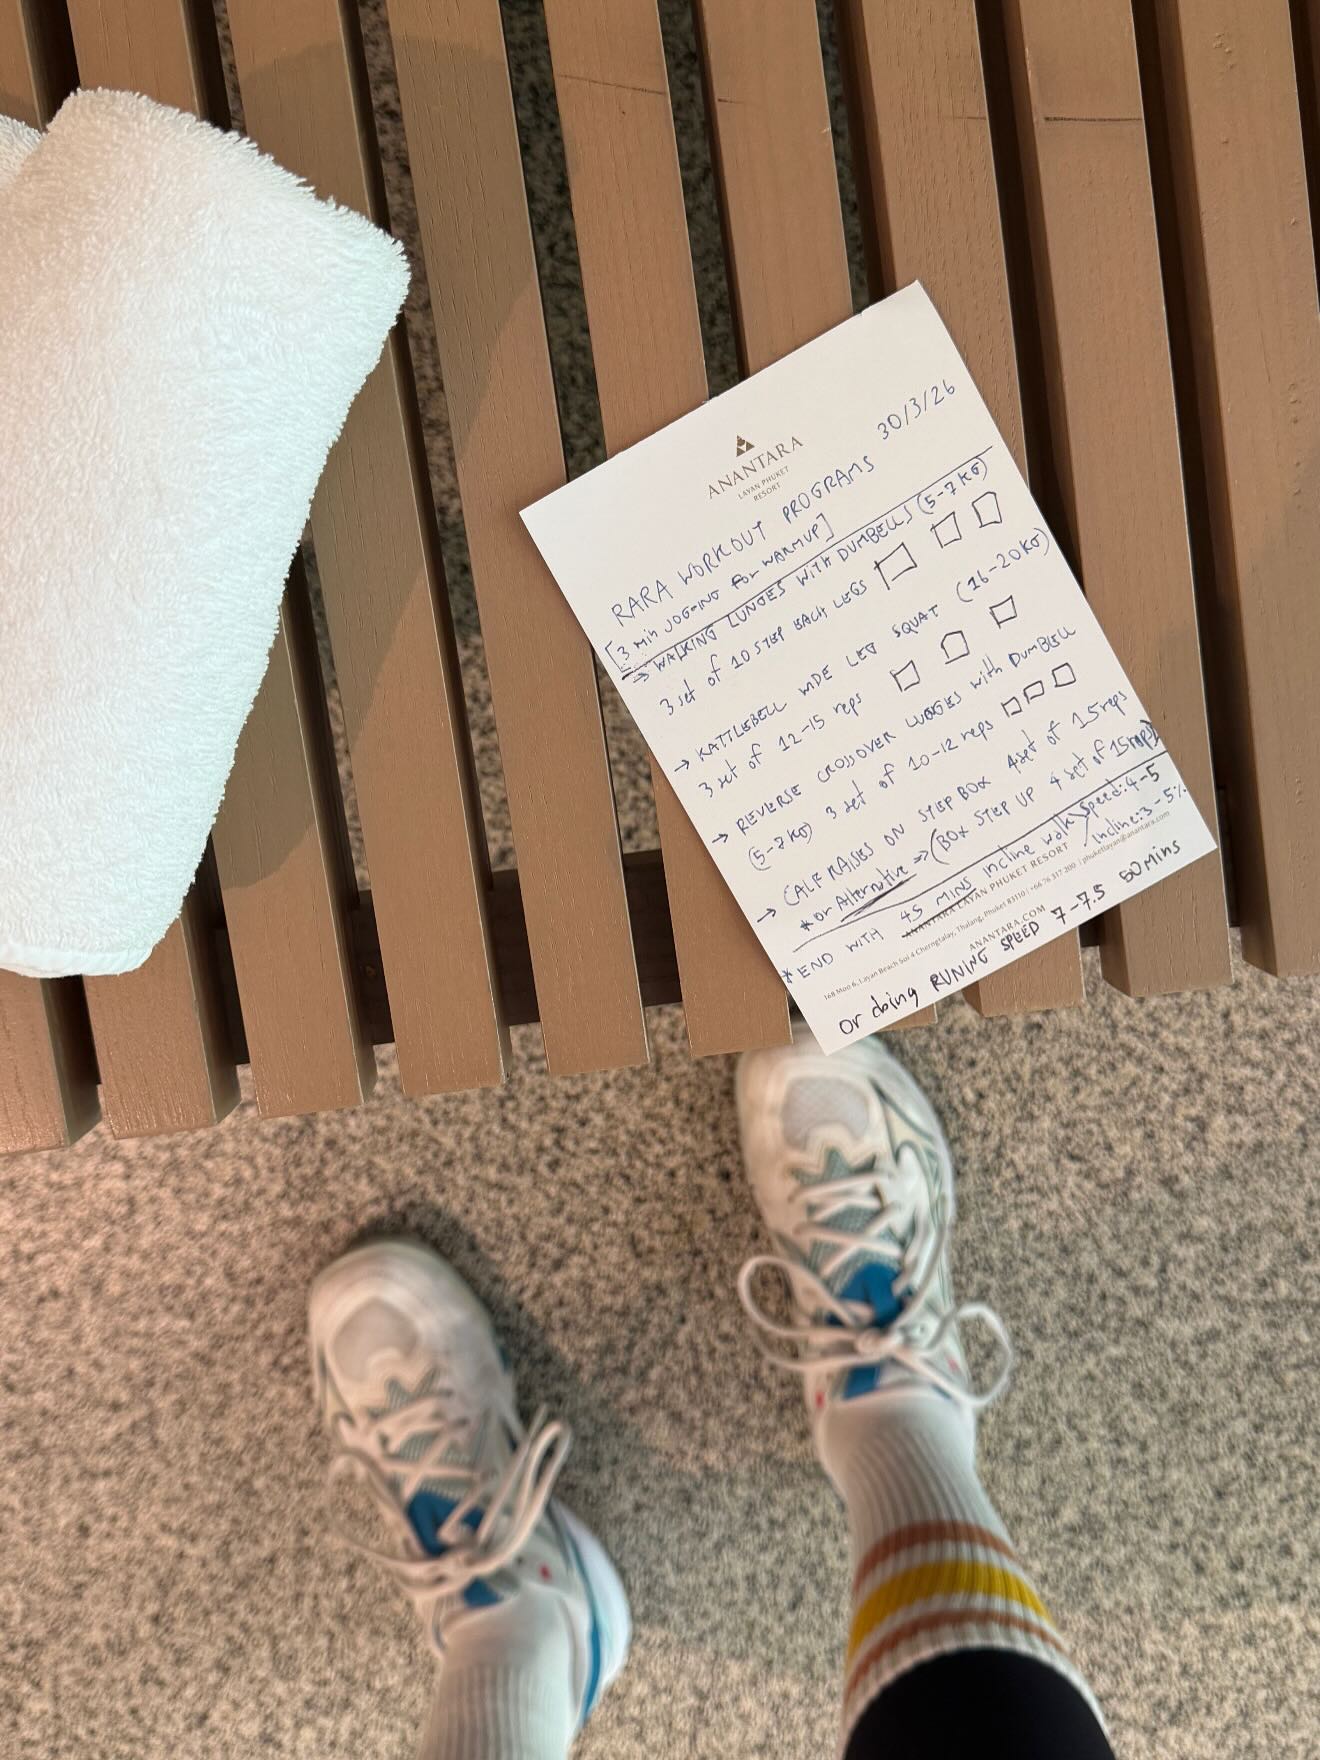 30/3/26
ANANTARA
LAYAN PHUKET
RESORT
RARA WORKOUT PROGRAMS
[3 min JOGGING FOR WARMUP]
→ WALKING LUNGES WITH DUMBELLS (5-7KG)
3 set of 10 STEP EACH LEGS
→ KATTLEBELL WIDE LEG SQUAT (16-20KG)
3 set of 12-15 reps
→ REVERSE CROSSOVER LUNGES with DUMBELL
(5-7KG) 3 set of 10-12 reps
→ CALF RAISES ON STEP BOX 4 set of 15 reps
* or Alternative => (BOX STEP UP 4 set of 15 reps)
* END WITH 45 MINS incline walk / Speed: 4-5
/ Incline: 3-5%
ANANTARA LAYAN PHUKET RESORT
168 Moo 6, Layan Beach Soi 4 Cherngtalay, Thalang, Phuket 83110 | +66 76 317 200 | phuketlayan@anantara.com
ANANTARA.COM
Or doing RUNING SPEED 7-7.5 50 mins